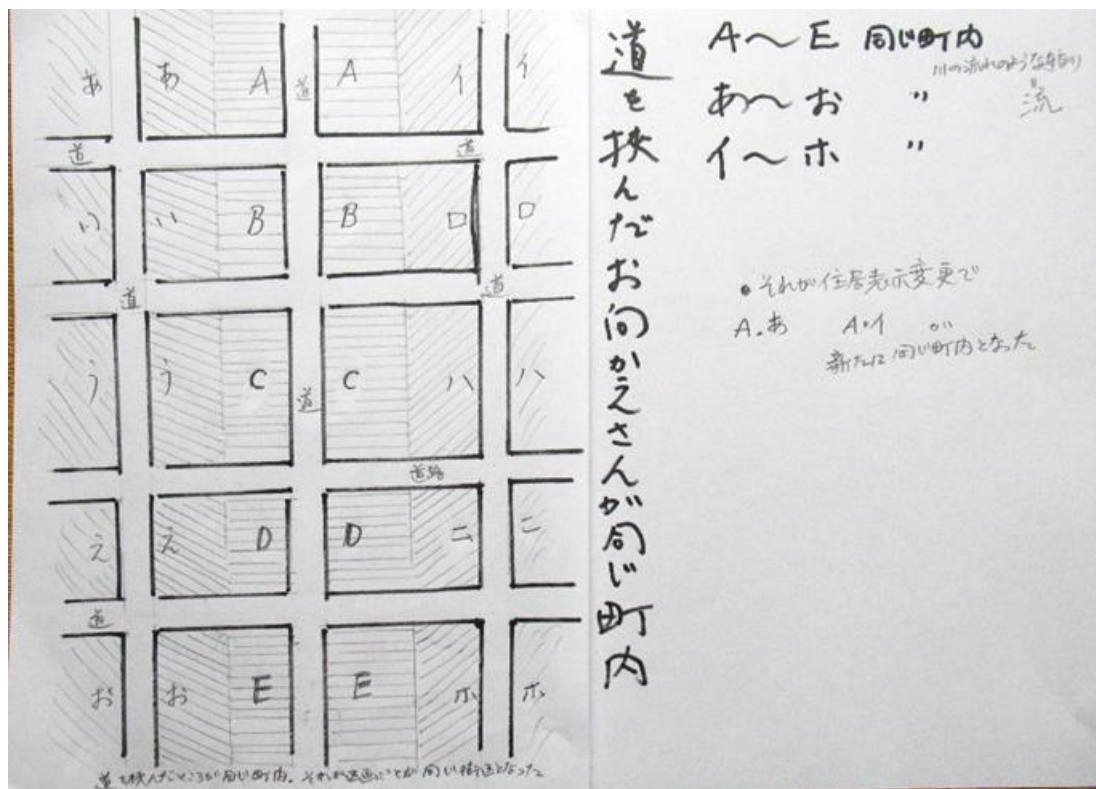 あ あ A 道 A イ イ
道 道
い い B B ロ ロ
道 道
う う C C ハ ハ
道
道路
え え D D ニ ニ
道
お お E E ホ ホ
道を挟んだところが同じ町内。それが
同じ街区となった
道を挟んだお向かえさんが同じ町内
A〜E 同じ町内
川の流れのような
流
あ〜お 〃
イ〜ホ 〃
•それが住居表示変更で
A・あ A・イ が
新たに同じ町内となった